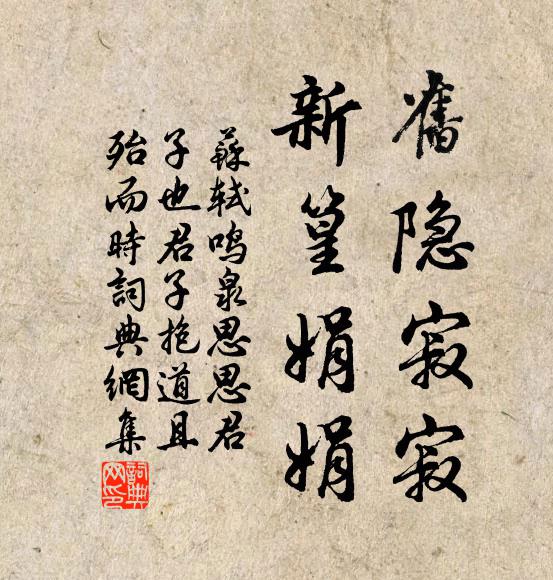 舊隐寂寂
新篁娟娟
蘇轼鳴泉思思君
子也君子抱道且
殆而時詞典網集
詞典
网印